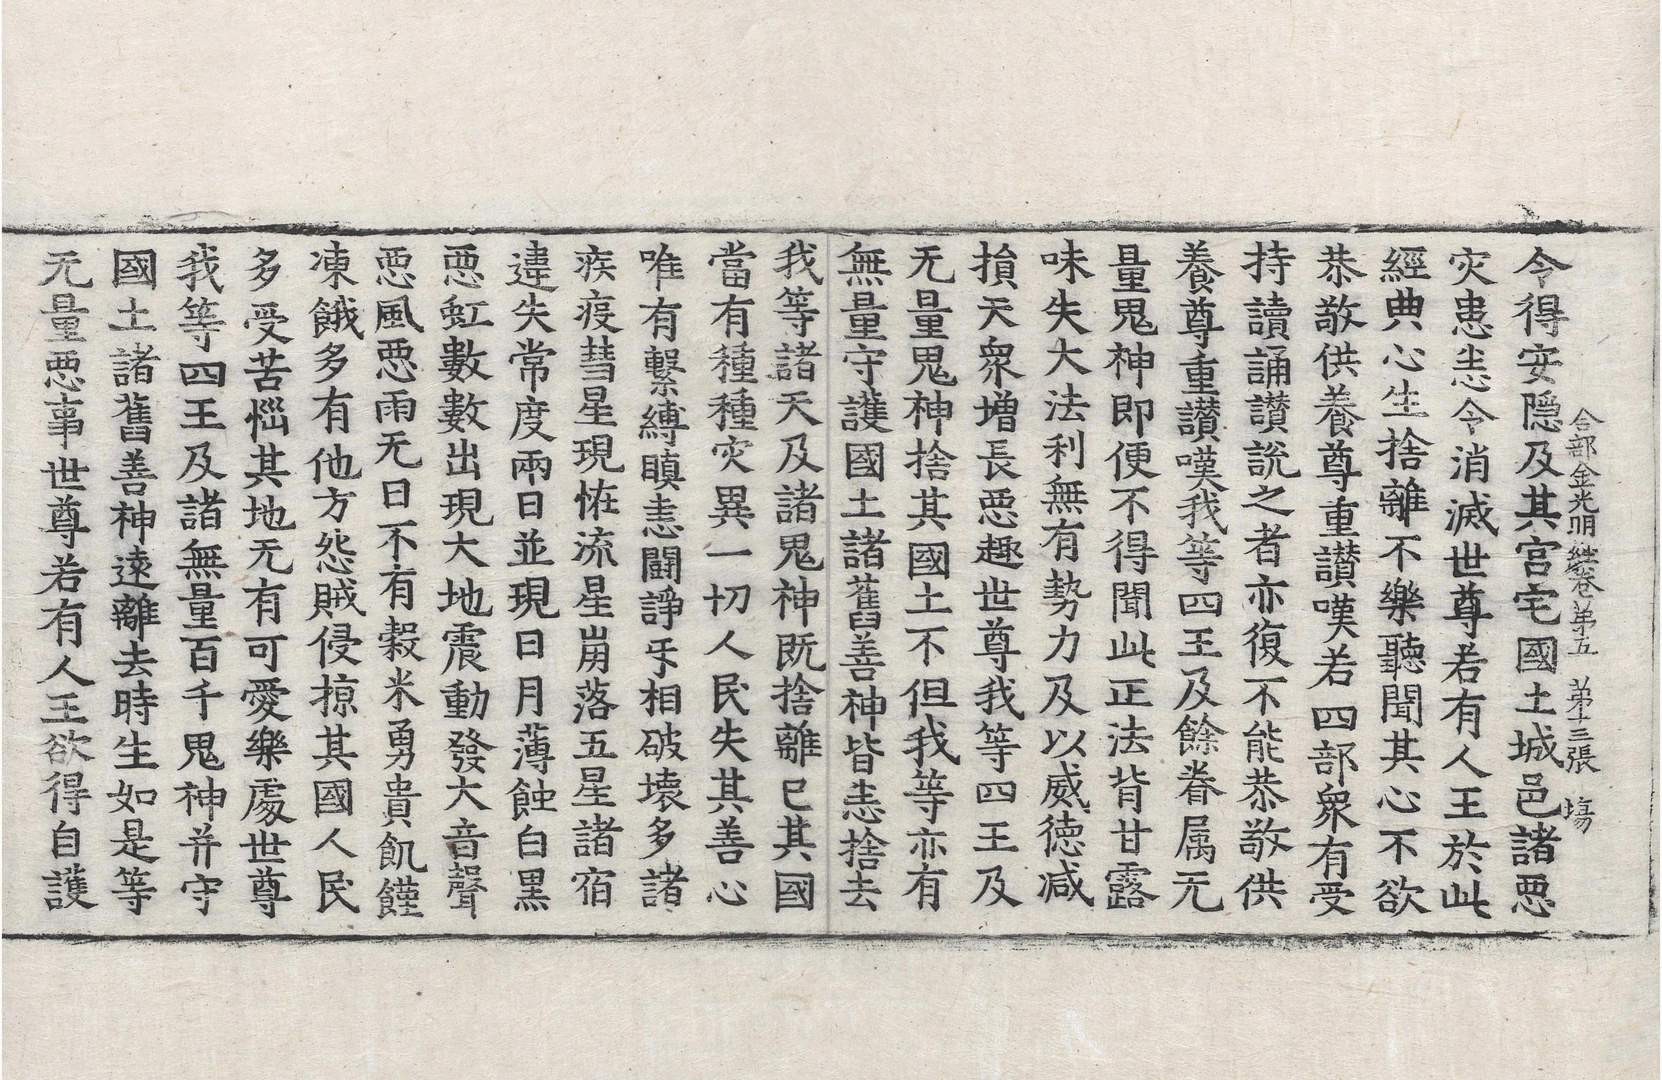 合部金光明經卷苐五　苐十三張　塲
令得安隱及其宮宅國土城邑諸惡
灾患悉令消滅世尊若有人王於此
經典心生捨離不樂聽聞其心不欲
恭敬供養尊重讃嘆若四部衆有受
持讀誦讃説之者亦復不能恭敬供
養尊重讃嘆我等四王及餘眷属无
量鬼神即便不得聞此正法背甘露
味失大法利無有勢力及以威徳减
損天衆增長惡趣世尊我等四王及
无量鬼神捨其國土不但我等亦有
無量守護國土諸舊善神皆悉捨去
我等諸天及諸鬼神既捨離已其國
當有種種灾異一切人民失其善心
唯有繫縛瞋恚鬪諍㸦相破壞多諸
疾疫彗星現恠流星崩落五星諸宿
違失常度兩日並現日月薄蝕白黑
惡虹數數出現大地震動發大音聲
惡風惡雨无日不有穀米勇貴飢饉
凍餓多有他方怨賊侵掠其國人民
多受苦惱其地无有可愛樂處世尊
我等四王及諸無量百千鬼神并守
國土諸舊善神遠離去時生如是等
无量惡事世尊若有人王欲得自護